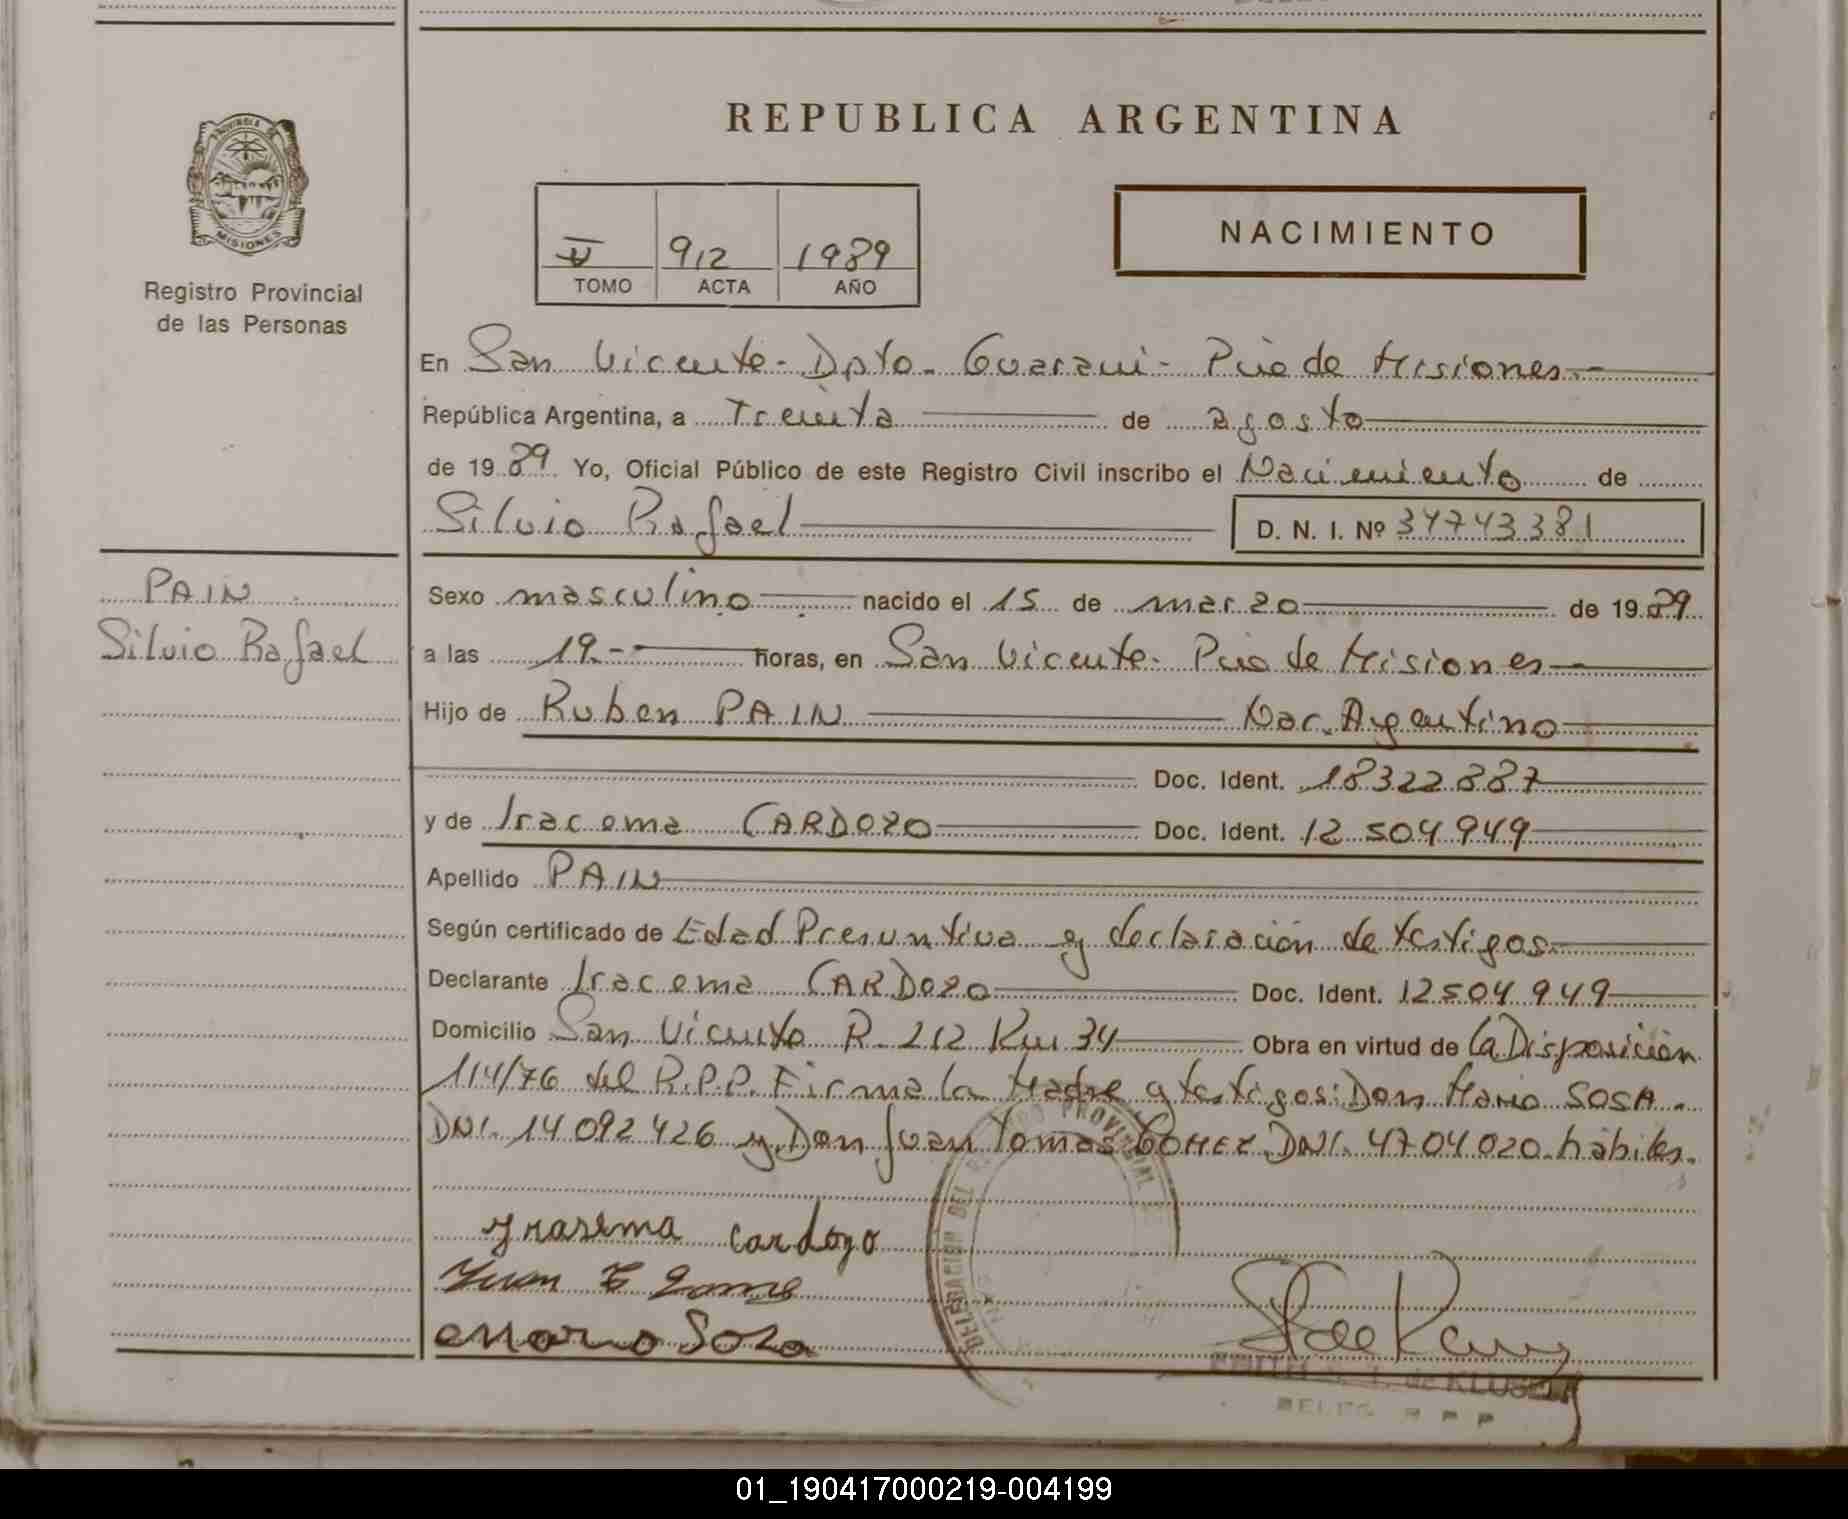 REPUBLICA ARGENTINA
PROVINCIA DE
MISIONES
Registro Provincial
de las Personas
912 1989
TOMO ACTA AÑO
NACIMIENTO
En San Vicente - Dpto. Guaraní - Pcia de Misiones.-
República Argentina, a Treinta de agosto
de 1989 Yo, Oficial Público de este Registro Civil inscribo el Nacimiento de
Silvio Rafael
D. N. I. Nº 34743381
PAIN
Silvio Rafael
Sexo masculino nacido el 15 de marzo de 1989
a las 19.- horas, en San Vicente. Pcia de Misiones
Hijo de Ruben PAIN Nac. Argentino
Doc. Ident. 18322887
y de Iracema CARDOZO Doc. Ident. 12504949
Apellido PAIN
Según certificado de Edad Presuntiva y declaración de testigos
Declarante Iracema CARDOZO Doc. Ident. 12504949
Domicilio San Vicente R. 212 Km 34 Obra en virtud de la Disposición
114/76 del R.P.P. Firma la Madre y testigos: Don Mario SOSA.
DNI. 14092426 y Don Juan Tomas GOMEZ DNI. 4704020. hábiles.
DELEGACION DEL PROVINCIAL
Irasema Cardozo
Juan T Gome
Mario Sosa
de KLUSE
DELEG R P P
01_190417000219-004199